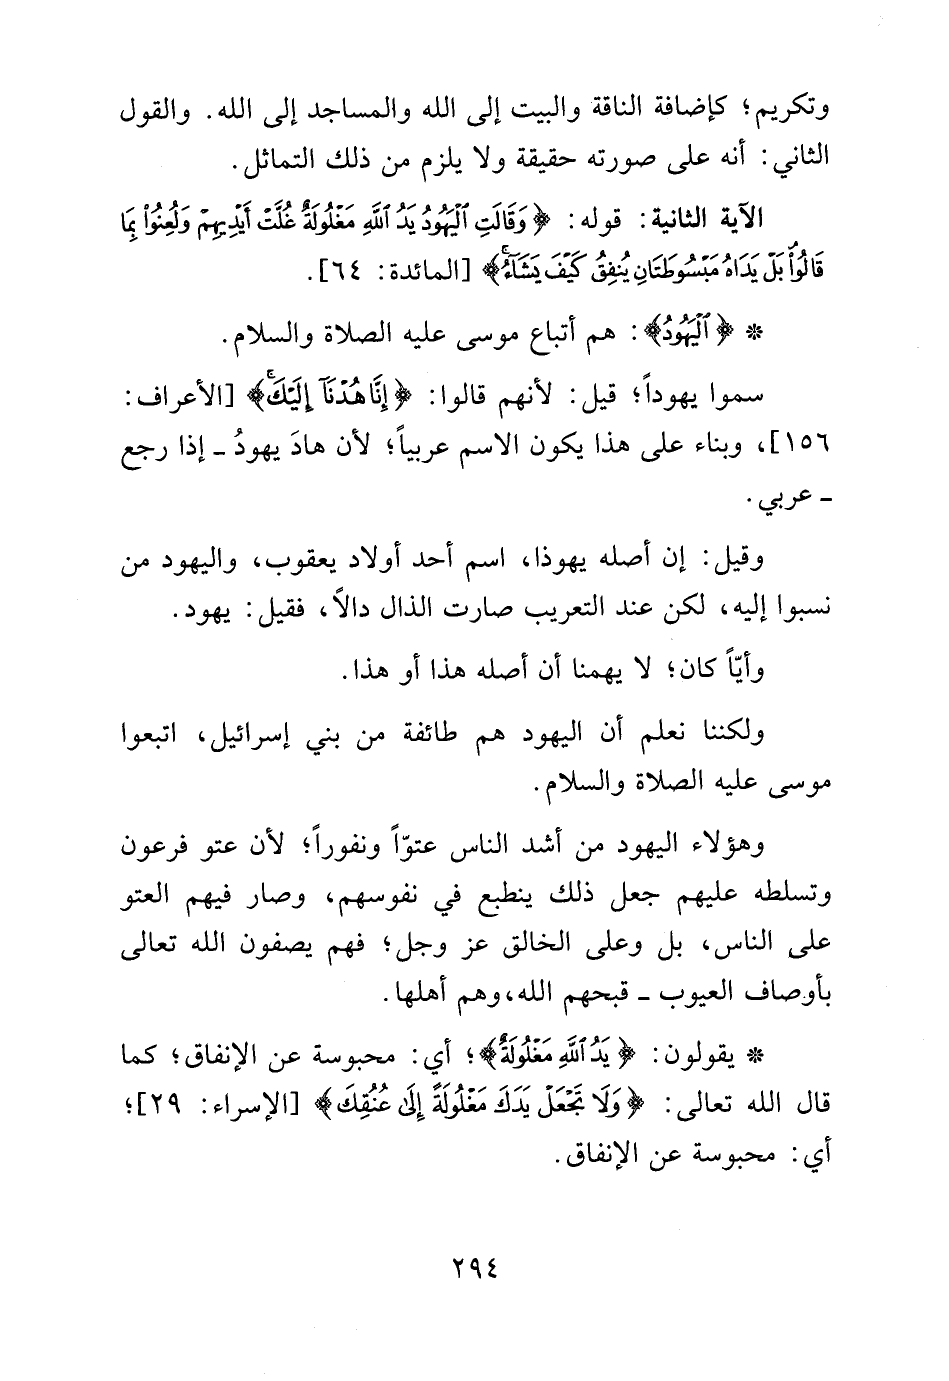 وتكريم؛ كإضافة الناقة والبيت إلى الله والمساجد إلى الله. والقول
الثاني: أنه على صورته حقيقة ولا يلزم من ذلك التماثل.
الآية الثانية: قوله: ﴿وَقَالَتِ ٱلْيَهُودُ يَدُ ٱللَّهِ مَغْلُولَةٌ غُلَّتْ أَيْدِيهِمْ وَلُعِنُوا۟ بِمَا
قَالُوا۟ بَلْ يَدَاهُ مَبْسُوطَتَانِ يُنفِقُ كَيْفَ يَشَآءُ﴾ [المائدة: ٦٤].
* ﴿ٱلْيَهُودُ﴾: هم أتباع موسى عليه الصلاة والسلام.
سموا يهوداً؛ قيل: لأنهم قالوا: ﴿إِنَّا هُدْنَآ إِلَيْكَ﴾ [الأعراف:
١٥٦]، وبناء على هذا يكون الاسم عربياً؛ لأن هادَ يهودُ ـ إذا رجع
ـ عربي.
وقيل: إن أصله يهوذا، اسم أحد أولاد يعقوب، واليهود من
نسبوا إليه، لكن عند التعريب صارت الذال دالاً، فقيل: يهود.
وأيّاً كان؛ لا يهمنا أن أصله هذا أو هذا.
ولكننا نعلم أن اليهود هم طائفة من بني إسرائيل، اتبعوا
موسى عليه الصلاة والسلام.
وهؤلاء اليهود من أشد الناس عتوّاً ونفوراً؛ لأن عتو فرعون
وتسلطه عليهم جعل ذلك ينطبع في نفوسهم، وصار فيهم العتو
على الناس، بل وعلى الخالق عز وجل؛ فهم يصفون الله تعالى
بأوصاف العيوب ـ قبحهم الله، وهم أهلها.
* يقولون: ﴿يَدُ ٱللَّهِ مَغْلُولَةٌ﴾؛ أي: محبوسة عن الإنفاق؛ كما
قال الله تعالى: ﴿وَلَا تَجْعَلْ يَدَكَ مَغْلُولَةً إِلَىٰ عُنُقِكَ﴾ [الإسراء: ٢٩]؛
أي: محبوسة عن الإنفاق.
٢٩٤